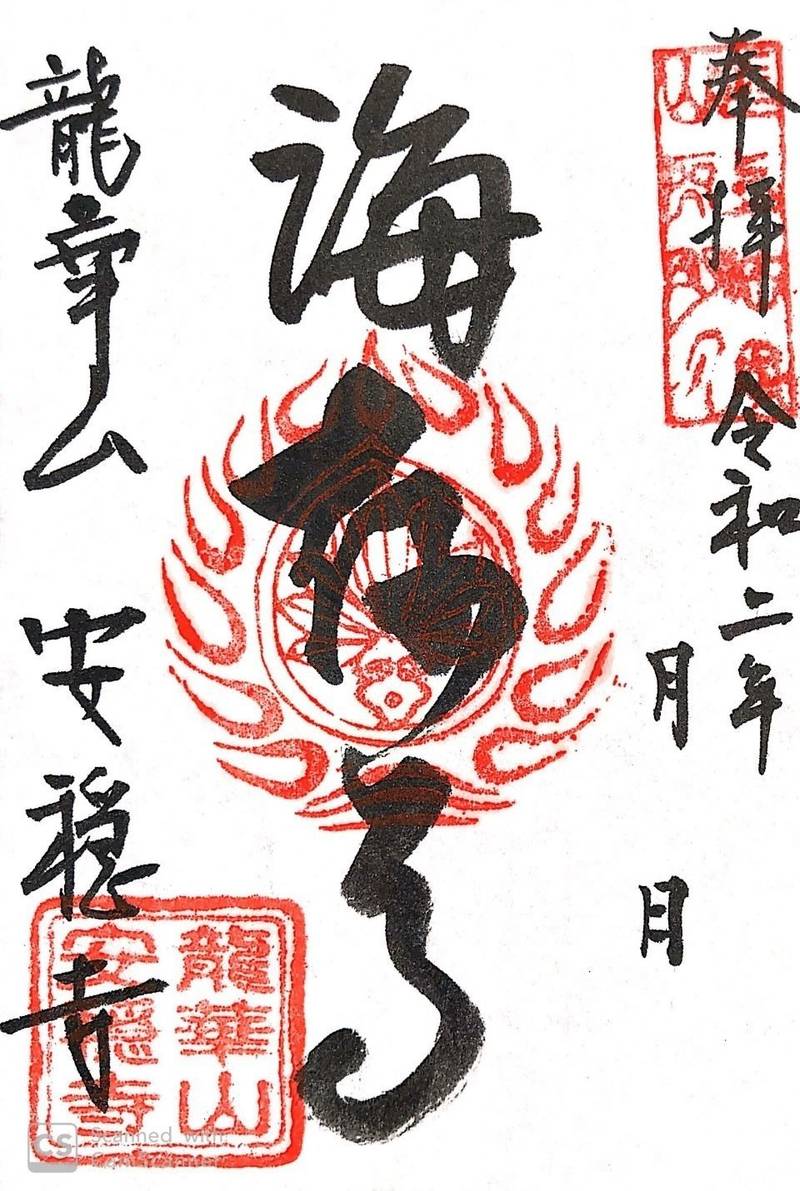 奉拝 令和二年
月 日
海 尊
龍華山 安穏寺
龍華山
安穏寺
CS Scanned with
CamScanner